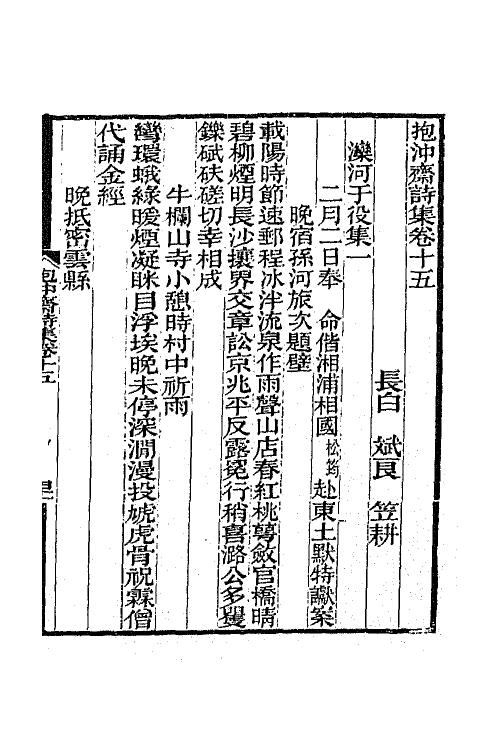 抱沖齋詩集卷十五
長白　斌良　笠耕
灤河于役集一
二月二日奉　命偕湘浦相國松筠赴東土默特讞案
晚宿孫河旅次題壁
載陽時節速郵程冰泮流泉作雨聲山店春紅桃萼斂官橋晴
碧柳煙明長沙攘界交章訟京兆平反露冕行稍喜潞公多矍
鑠碔砆磋切幸相成
牛欄山寺小憩時村中祈雨
彎環蛾綠暖煙凝眯目浮埃晚未停深澗漫投虓虎骨祝霖僧
代誦金經
晚抵密雲縣
抱沖齋詩集卷十五